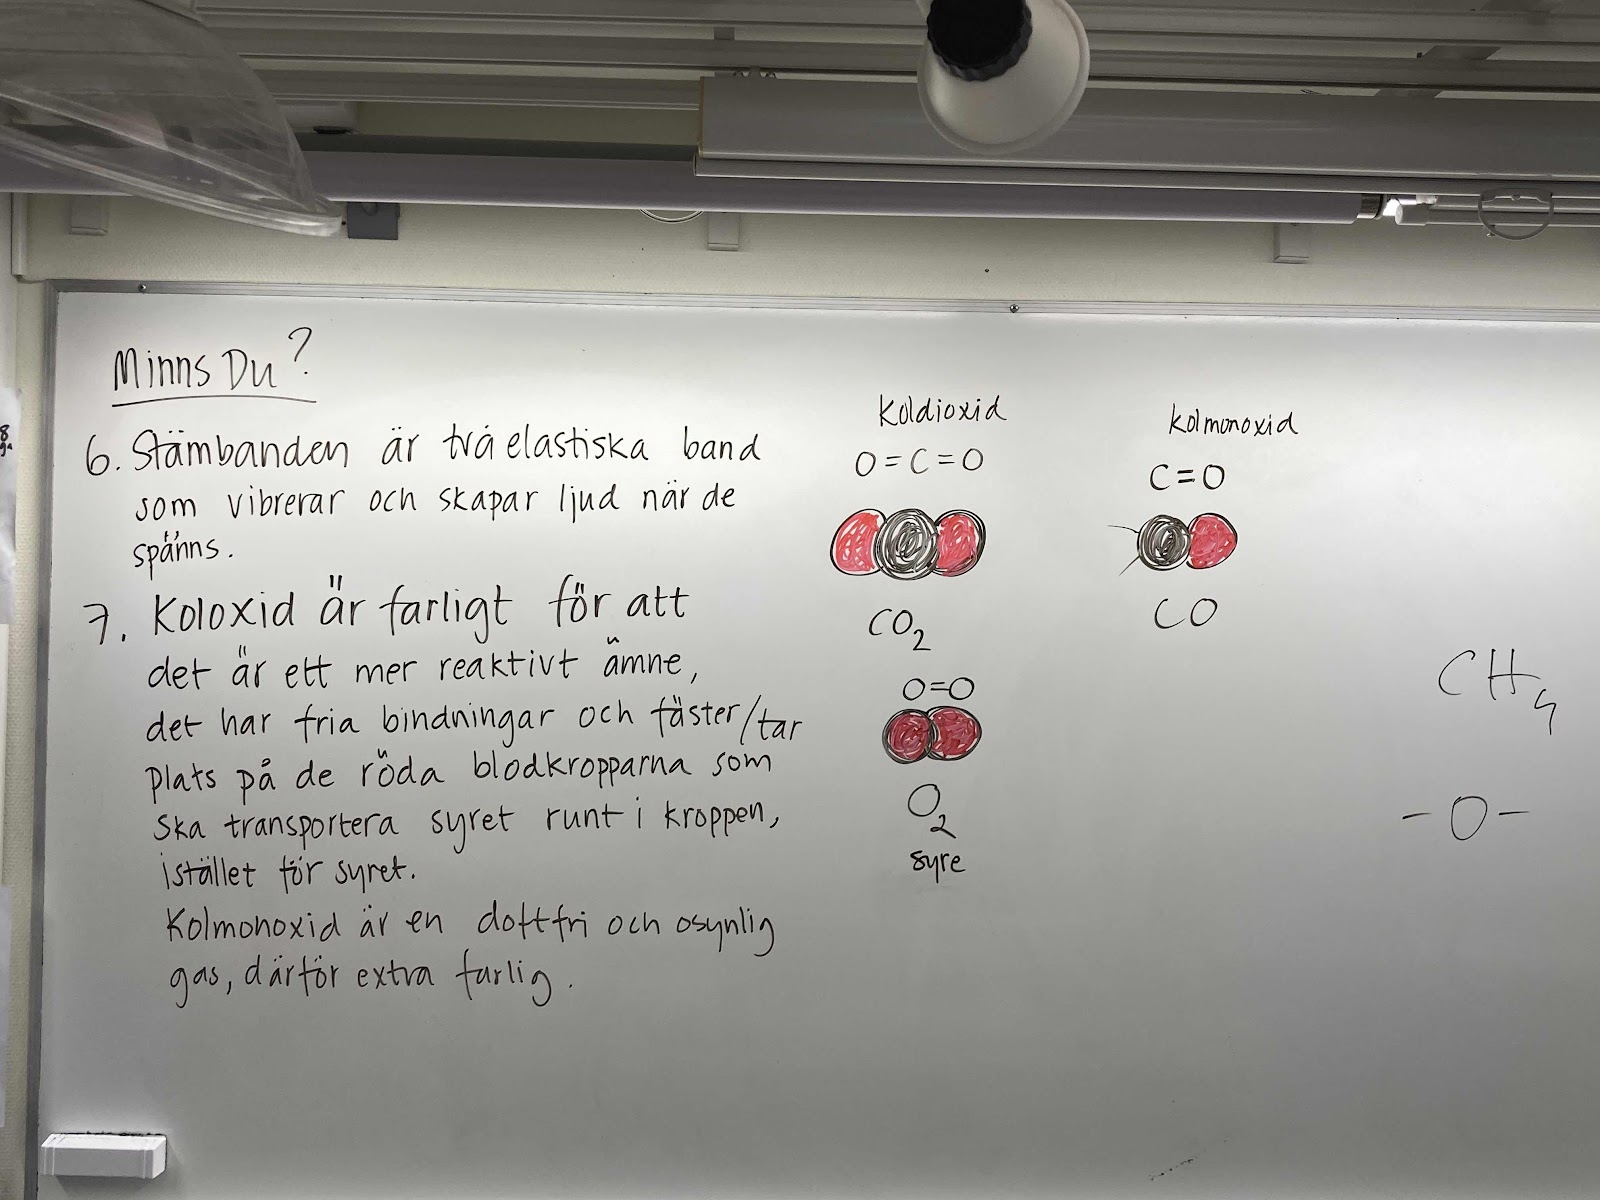 Minns Du?
6. Stämbanden är två elastiska band
som vibrerar och skapar ljud när de
spänns.
7. Koloxid är farligt för att
det är ett mer reaktivt ämne,
det har fria bindningar och fäster/tar
plats på de röda blodkropparna som
ska transportera syret runt i kroppen,
istället för syret.
Kolmonoxid är en doftfri och osynlig
gas, därför extra farlig.
Koldioxid
O=C=O
CO2
O=O
O2
syre
kolmonoxid
C=O
CO
CH4
-O-
8